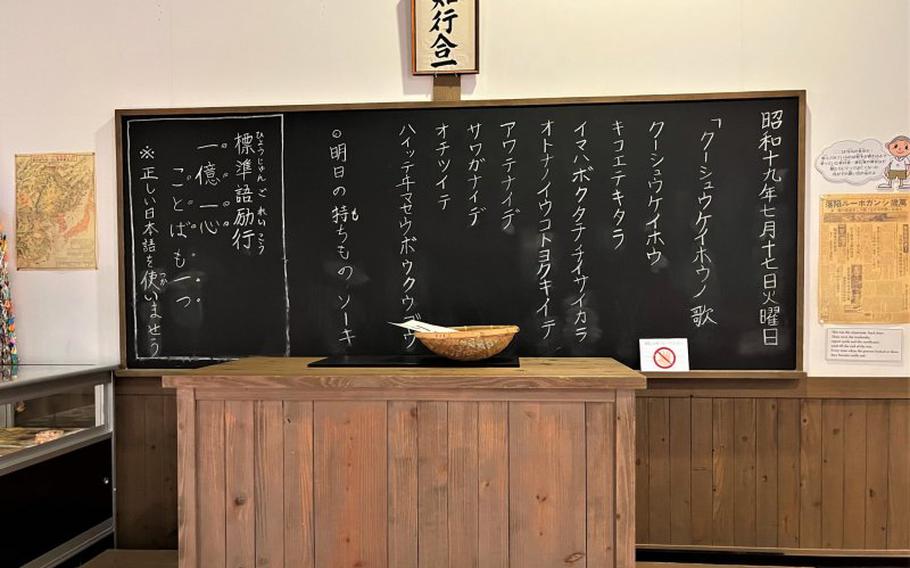 知行合一
昭和十九年七月十七日火曜日
「クーシュウケイホウノ歌
クーシュウケイホウ
キコエテキタラ
イマハボクタチチイサイカラ
オトナノイウコトヨクキイテ
アワテナイデ
サワガナイデ
オチツイテ
ハイッテヰマセウボウクウゴウ
◎明日の持ちもの ソーキ
標準語励行
ひょうじゅんごれいこう
一億一心
ことばも一つ
※正しい日本語を使いませう
萬歳シンガポール陥落